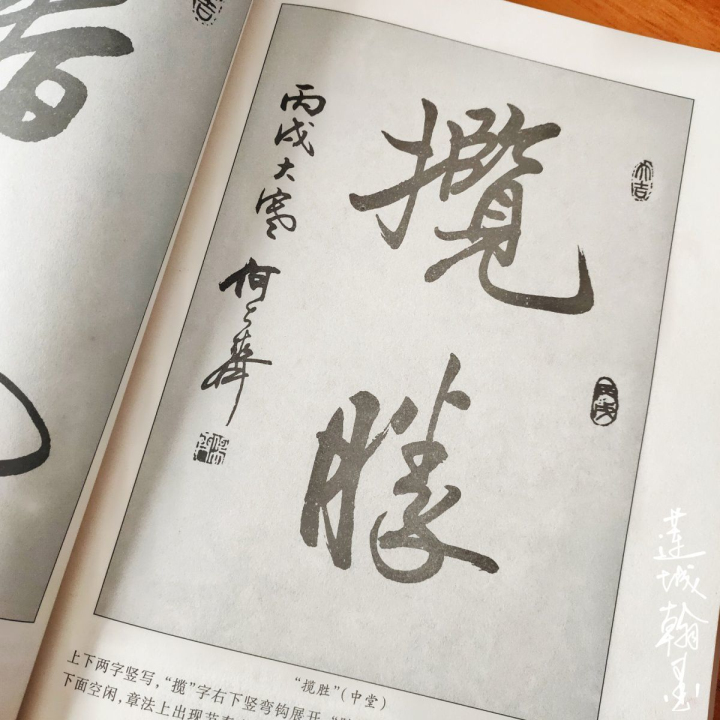 攬
勝
丙戌大寒
何之舞
大吉
丙戌
“揽胜”(中堂)
上下两字竖写,“揽”字右下竖弯钩展开
下面空闲,章法上出现
莲城翰墨